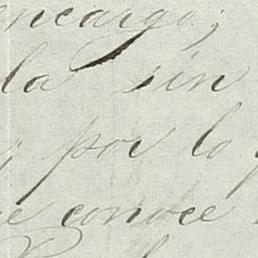 encargo;
la sin
; por lo
e conoce